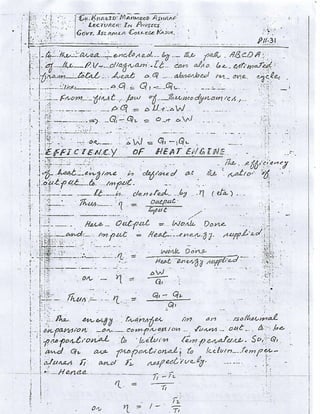 CH. KHALID MAHMOOD ASHRAF
LECTURER IN PHYSICS
GOVT. ISLAMIA COLLEGE KASUR
PII-31
to the area enclosed by the path ABCDA
of the P.V- diagram. It can also be estimated
from total heat ΔQ absorbed in one cycle
ΔQ = Q1 - Q2
From first law of thermodynamics,
ΔQ = ΔU + ΔW
=> Q1 - Q2 = 0 + ΔW
or ΔW = Q1 - Q2
EFFICIENCY OF HEAT ENGINE
The efficiency
of heat engine is defined as the ratio of
output to input.
It is denoted by η (eta).
Thus η = output / Input
Here Output = Work Done
and input = Heat energy supplied
η = Work Done / Heat energy supplied
or η = ΔW / Q1
Thus η = Q1 - Q2 / Q1
The energy transfer in an isothermal
expansion or compression turns out to be
proportional to kelvin temperature. So, Q1
and Q2 are proportional to kelvin temper-
atures T1 and T2 respectively.
Hence
η = T1 - T2 / T1
or η = 1 - T2 / T1